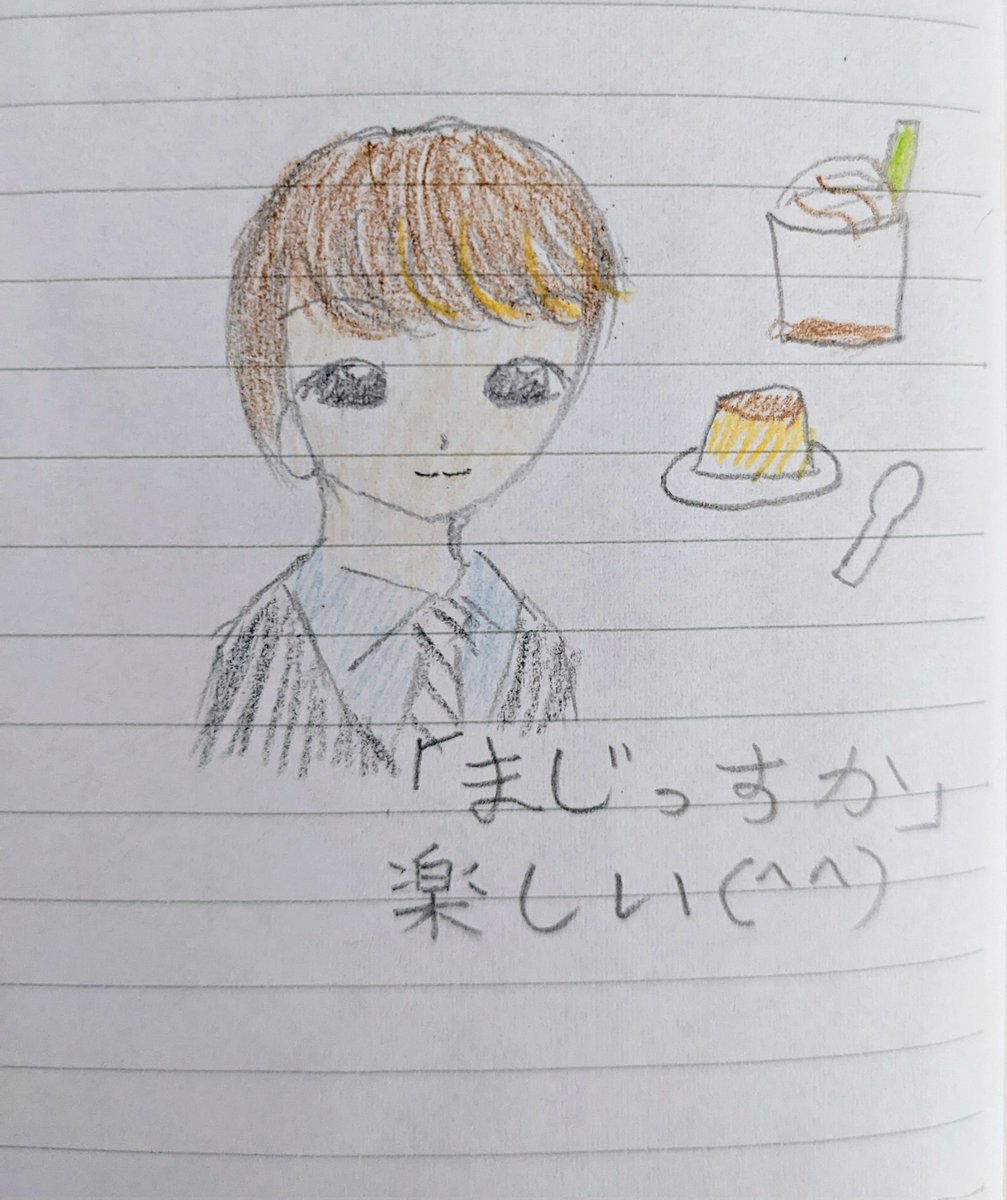 「まじっすか」
楽しい(^^)